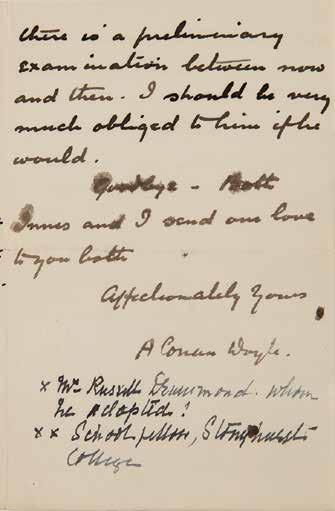 there is a preliminary
examination between now
and then. I should be very
much obliged to him if he
would.
Goodbye - Both
Innes and I send our love
to you both
Affectionately Yours
A Conan Doyle.
x Mr Russell Drummond. whom
he adopted!
x x School fellow, Stonyhurst
College